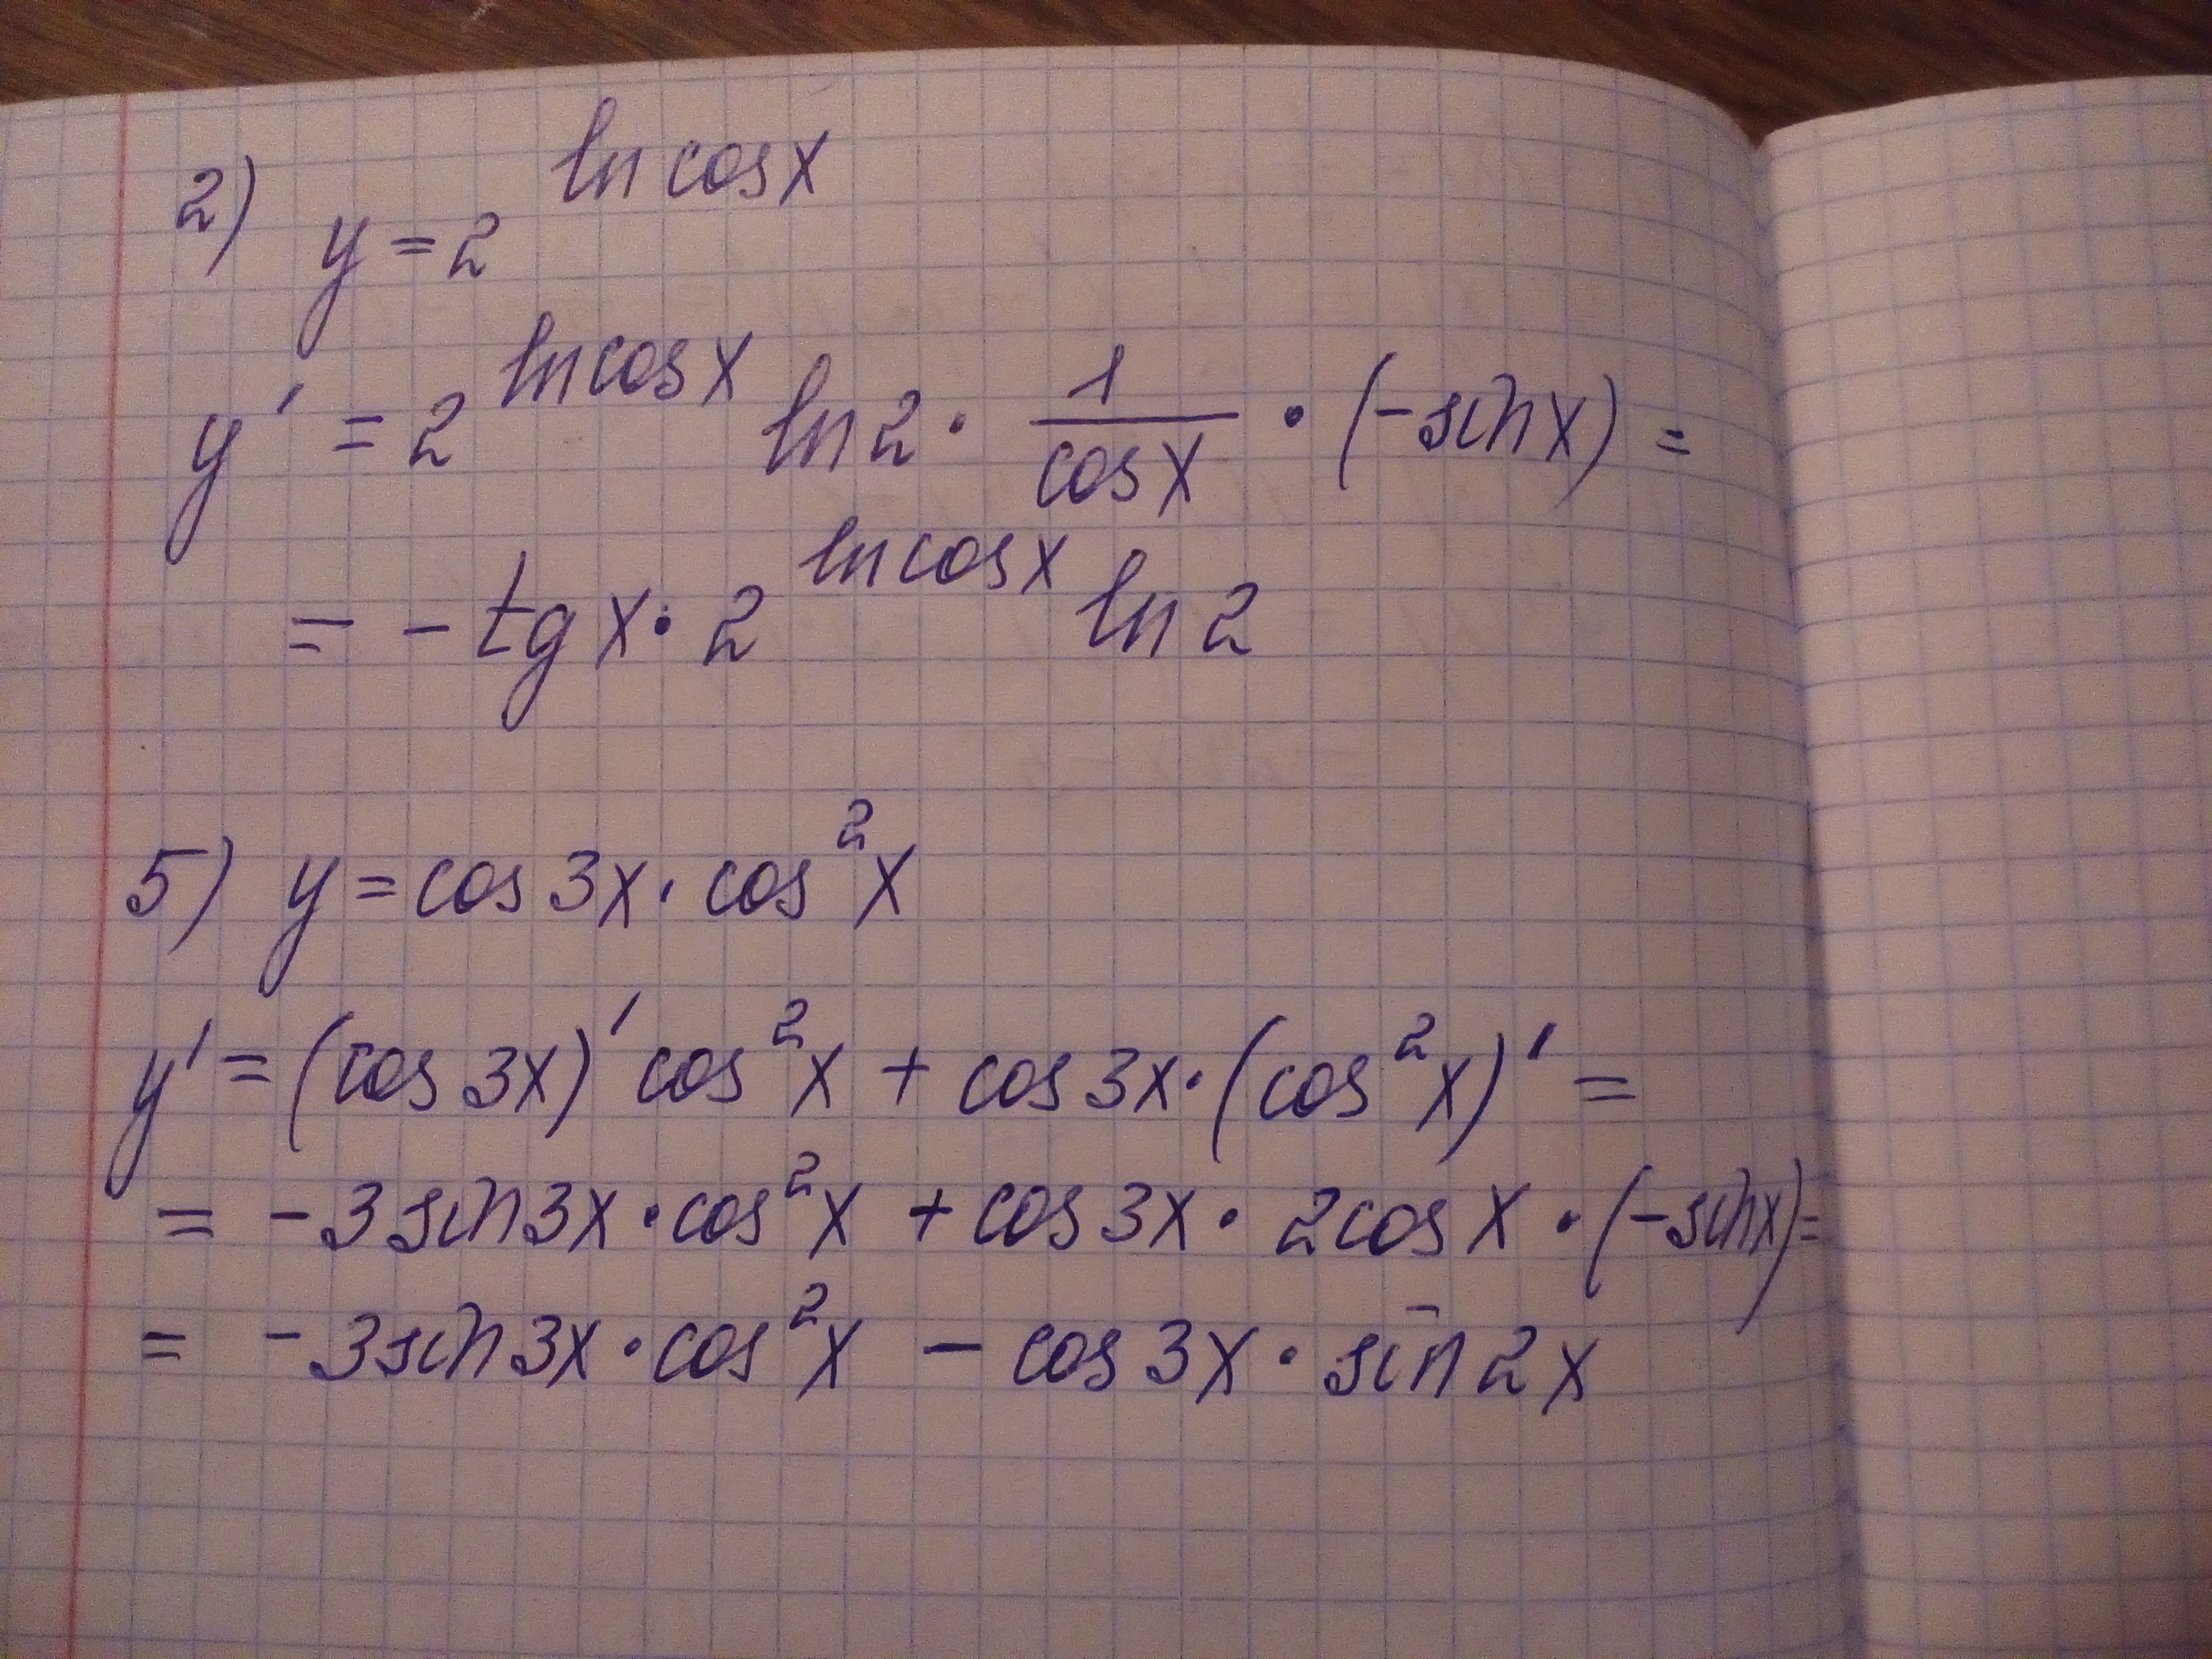 2) y = 2^{ln cos x}
y' = 2^{ln cos x} ln 2 · \frac{1}{cos x} · (-sin x) =
= - tg x · 2^{ln cos x} ln 2
5) y = cos 3x · cos² x
y' = (cos 3x)' cos² x + cos 3x · (cos² x)' =
= -3 sin 3x · cos² x + cos 3x · 2 cos x · (-sin x) =
= -3 sin 3x · cos² x - cos 3x · sin 2x